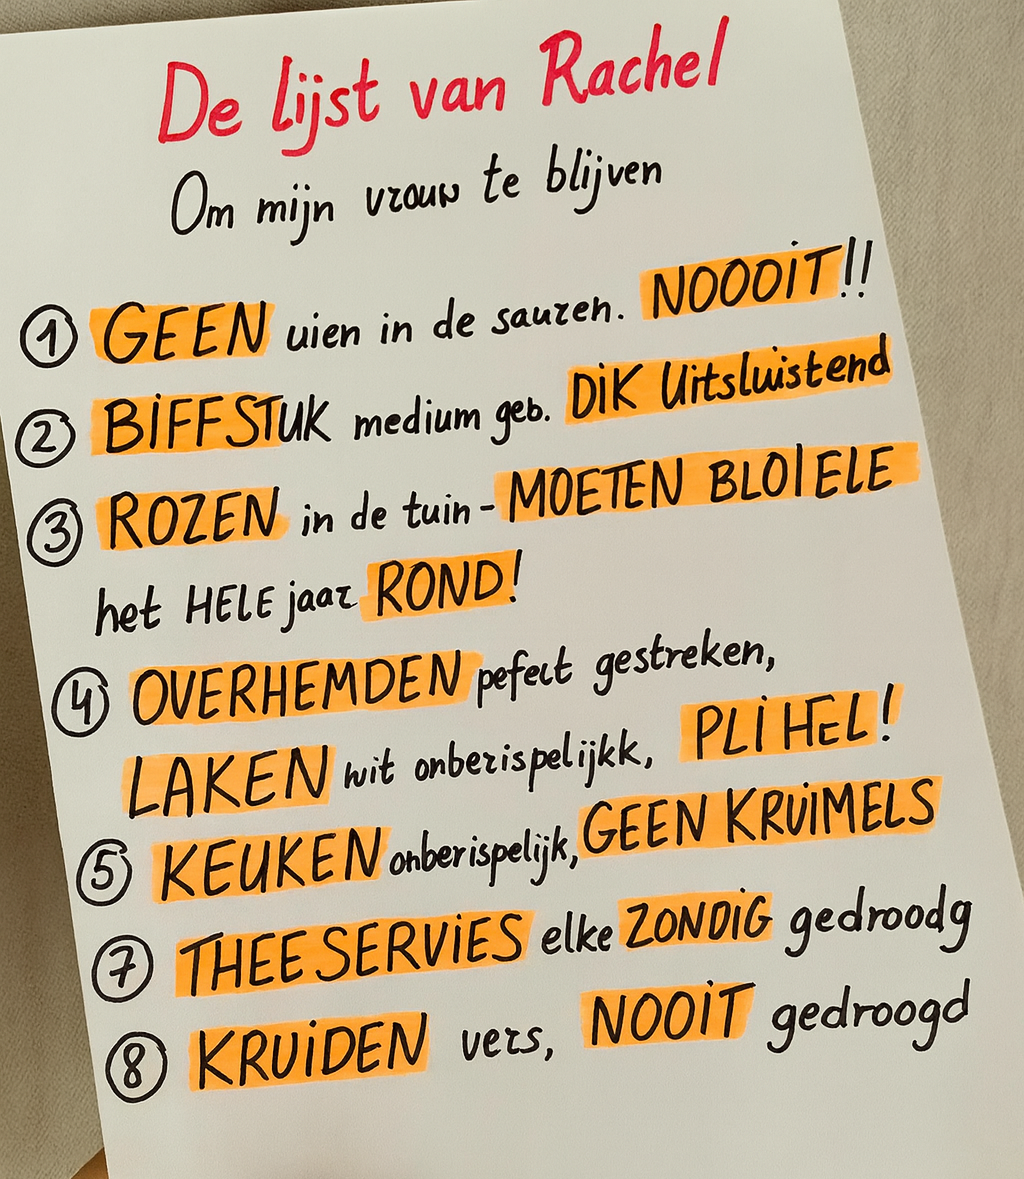 De lijst van Rachel
Om mijn vrouw te blijven
1 GEEN uien in de sauzen. NOOOiT!!
2 BiFFSTUK medium geb. DiK Uitsluistend
3 ROZEN in de tuin - MOETEN BLOIELE
het HELE jaar ROND!
4 OVERHEMDEN pefect gestreken,
LAKEN wit onberispelijkk, PLiHEL!
5 KEUKEN onberispelijk, GEEN KRUiMELS
7 THEESERViES elke ZONDiG gedroodg
8 KRUiDEN vers, NOOiT gedroogd